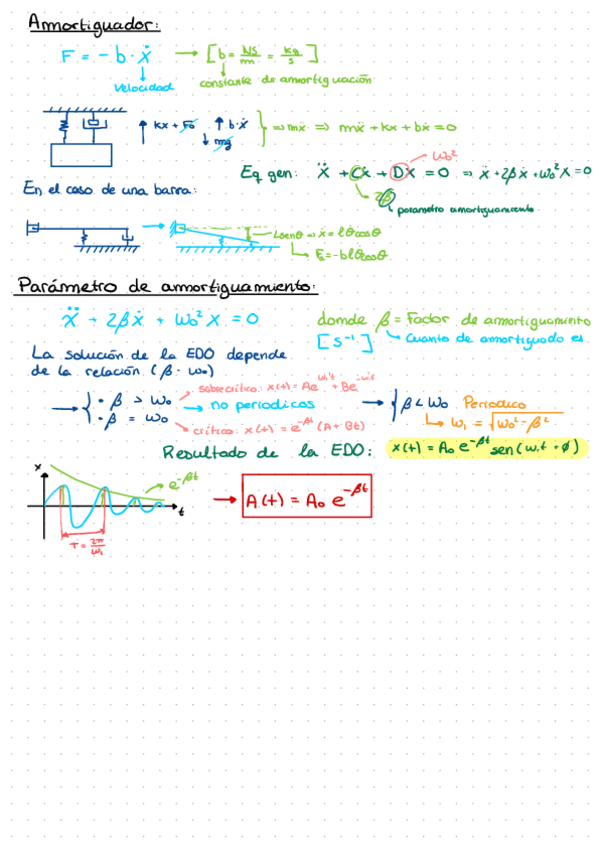 Amortiguador:
F = - b · ẍ → [ b = NS/m = kg/s ]
velocidad
constante de amortiguación
kx + F₀ b·ẋ mg } ⇒ mẍ ⇒ mẍ + kx + bẋ = 0
ω₀²
Eq gen: ẍ + Cẋ + Dx = 0 ⇒ ẍ + 2βẋ + ω₀²x = 0
2β
parametro amortiguamiento
En el caso de una barra:
Lsenθ ⇒ ẋ = lθ̇cosθ
Parámetro de amortiguamiento:
ẍ + 2βẋ + ω₀²x = 0 donde β = Factor de amortiguamiento
[s⁻¹] Cuanto de amortiguado es
La solución de la EDO depende
de la relación (β - ω₀)
sobrecrítico: x(t) = Ae + Be
→ { · β > ω₀ → no periodicos → { β < ω₀ Periodico
· β = ω₀ ω₁ = √ω₀² - β²
crítico: x(t) = e^-βt (A + Bt)
Resultado de la EDO: x(t) = A₀ e^-βt sen(ω₁t + ϕ)
x
e^-βt
t
→ A(t) = A₀ e^-βt
T = 2π/ω₁